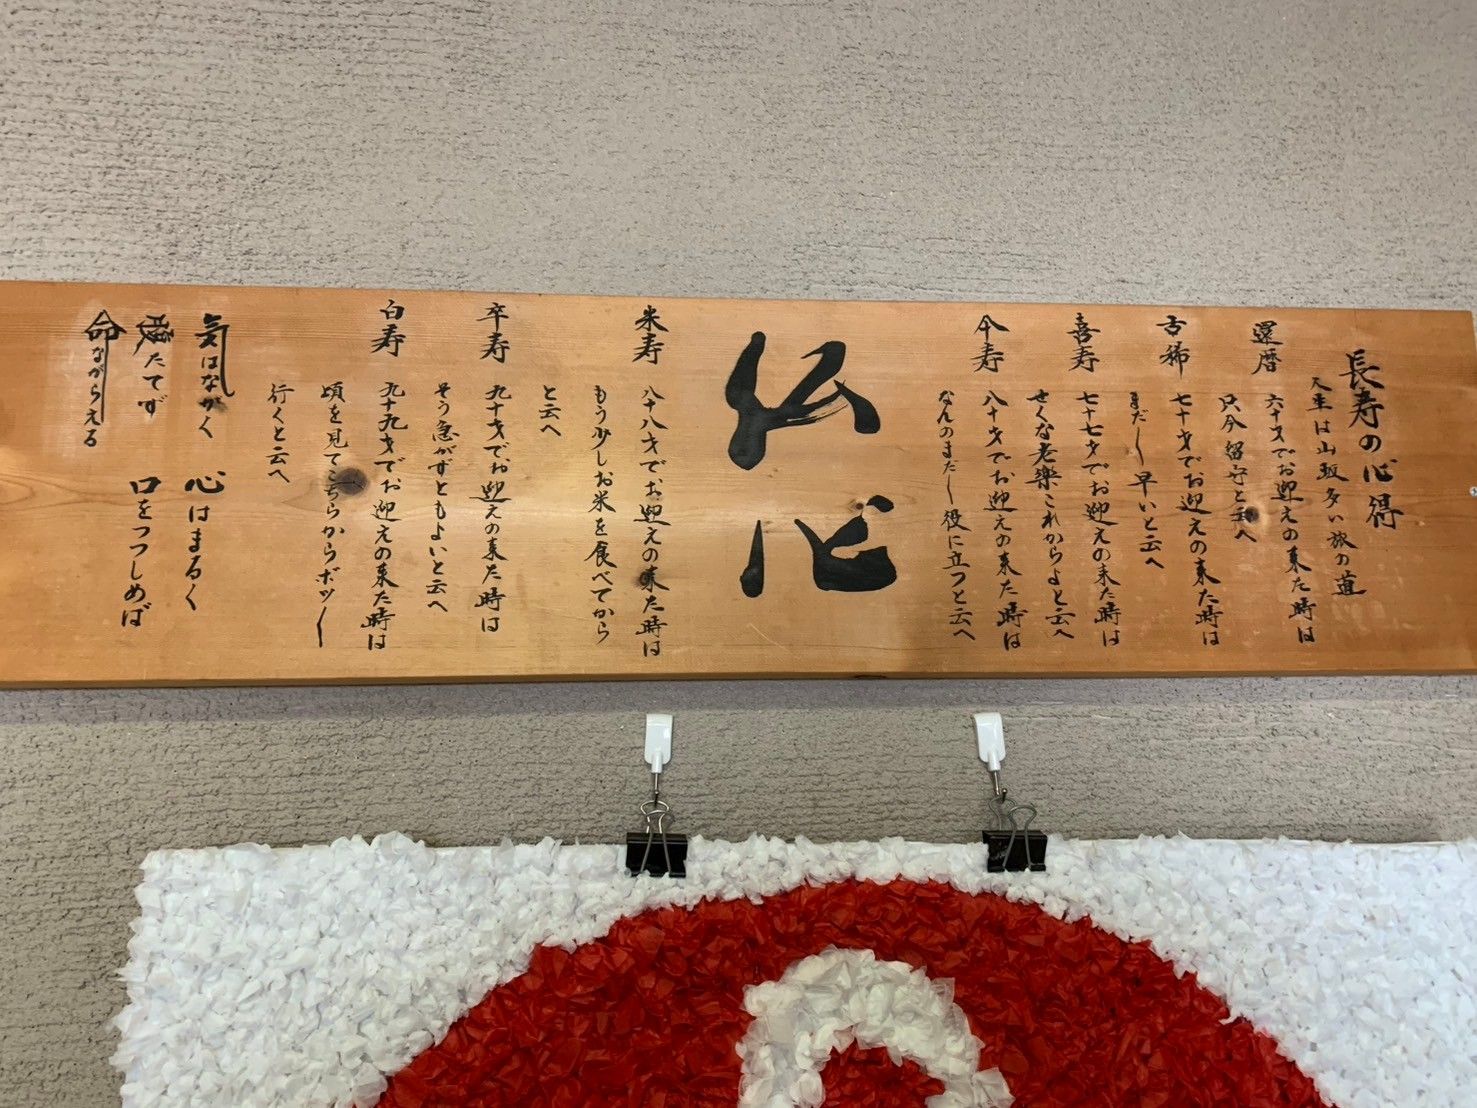 長寿の心得
人生は山坂多い旅の道
還暦
六十才でお迎えの来た時は
只今留守と云へ
古稀
七十才でお迎えの来た時は
まだ〳〵早いと云へ
喜寿
七十七才でお迎えの来た時は
せくな老楽これからよと云へ
傘寿
八十才でお迎えの来た時は
なんのまだ〳〵役に立つと云へ
仏心
米寿
八十八才でお迎えの来た時は
もう少しお米を食べてから
と云へ
卒寿
九十才でお迎えの来た時は
そう急がずともよいと云へ
白寿
九十九才でお迎えの来た時は
頃を見てこちらからボツ〳〵
行くと云へ
気はながく 心はまるく
腹たてず 口をつつしめば
命ながらえる